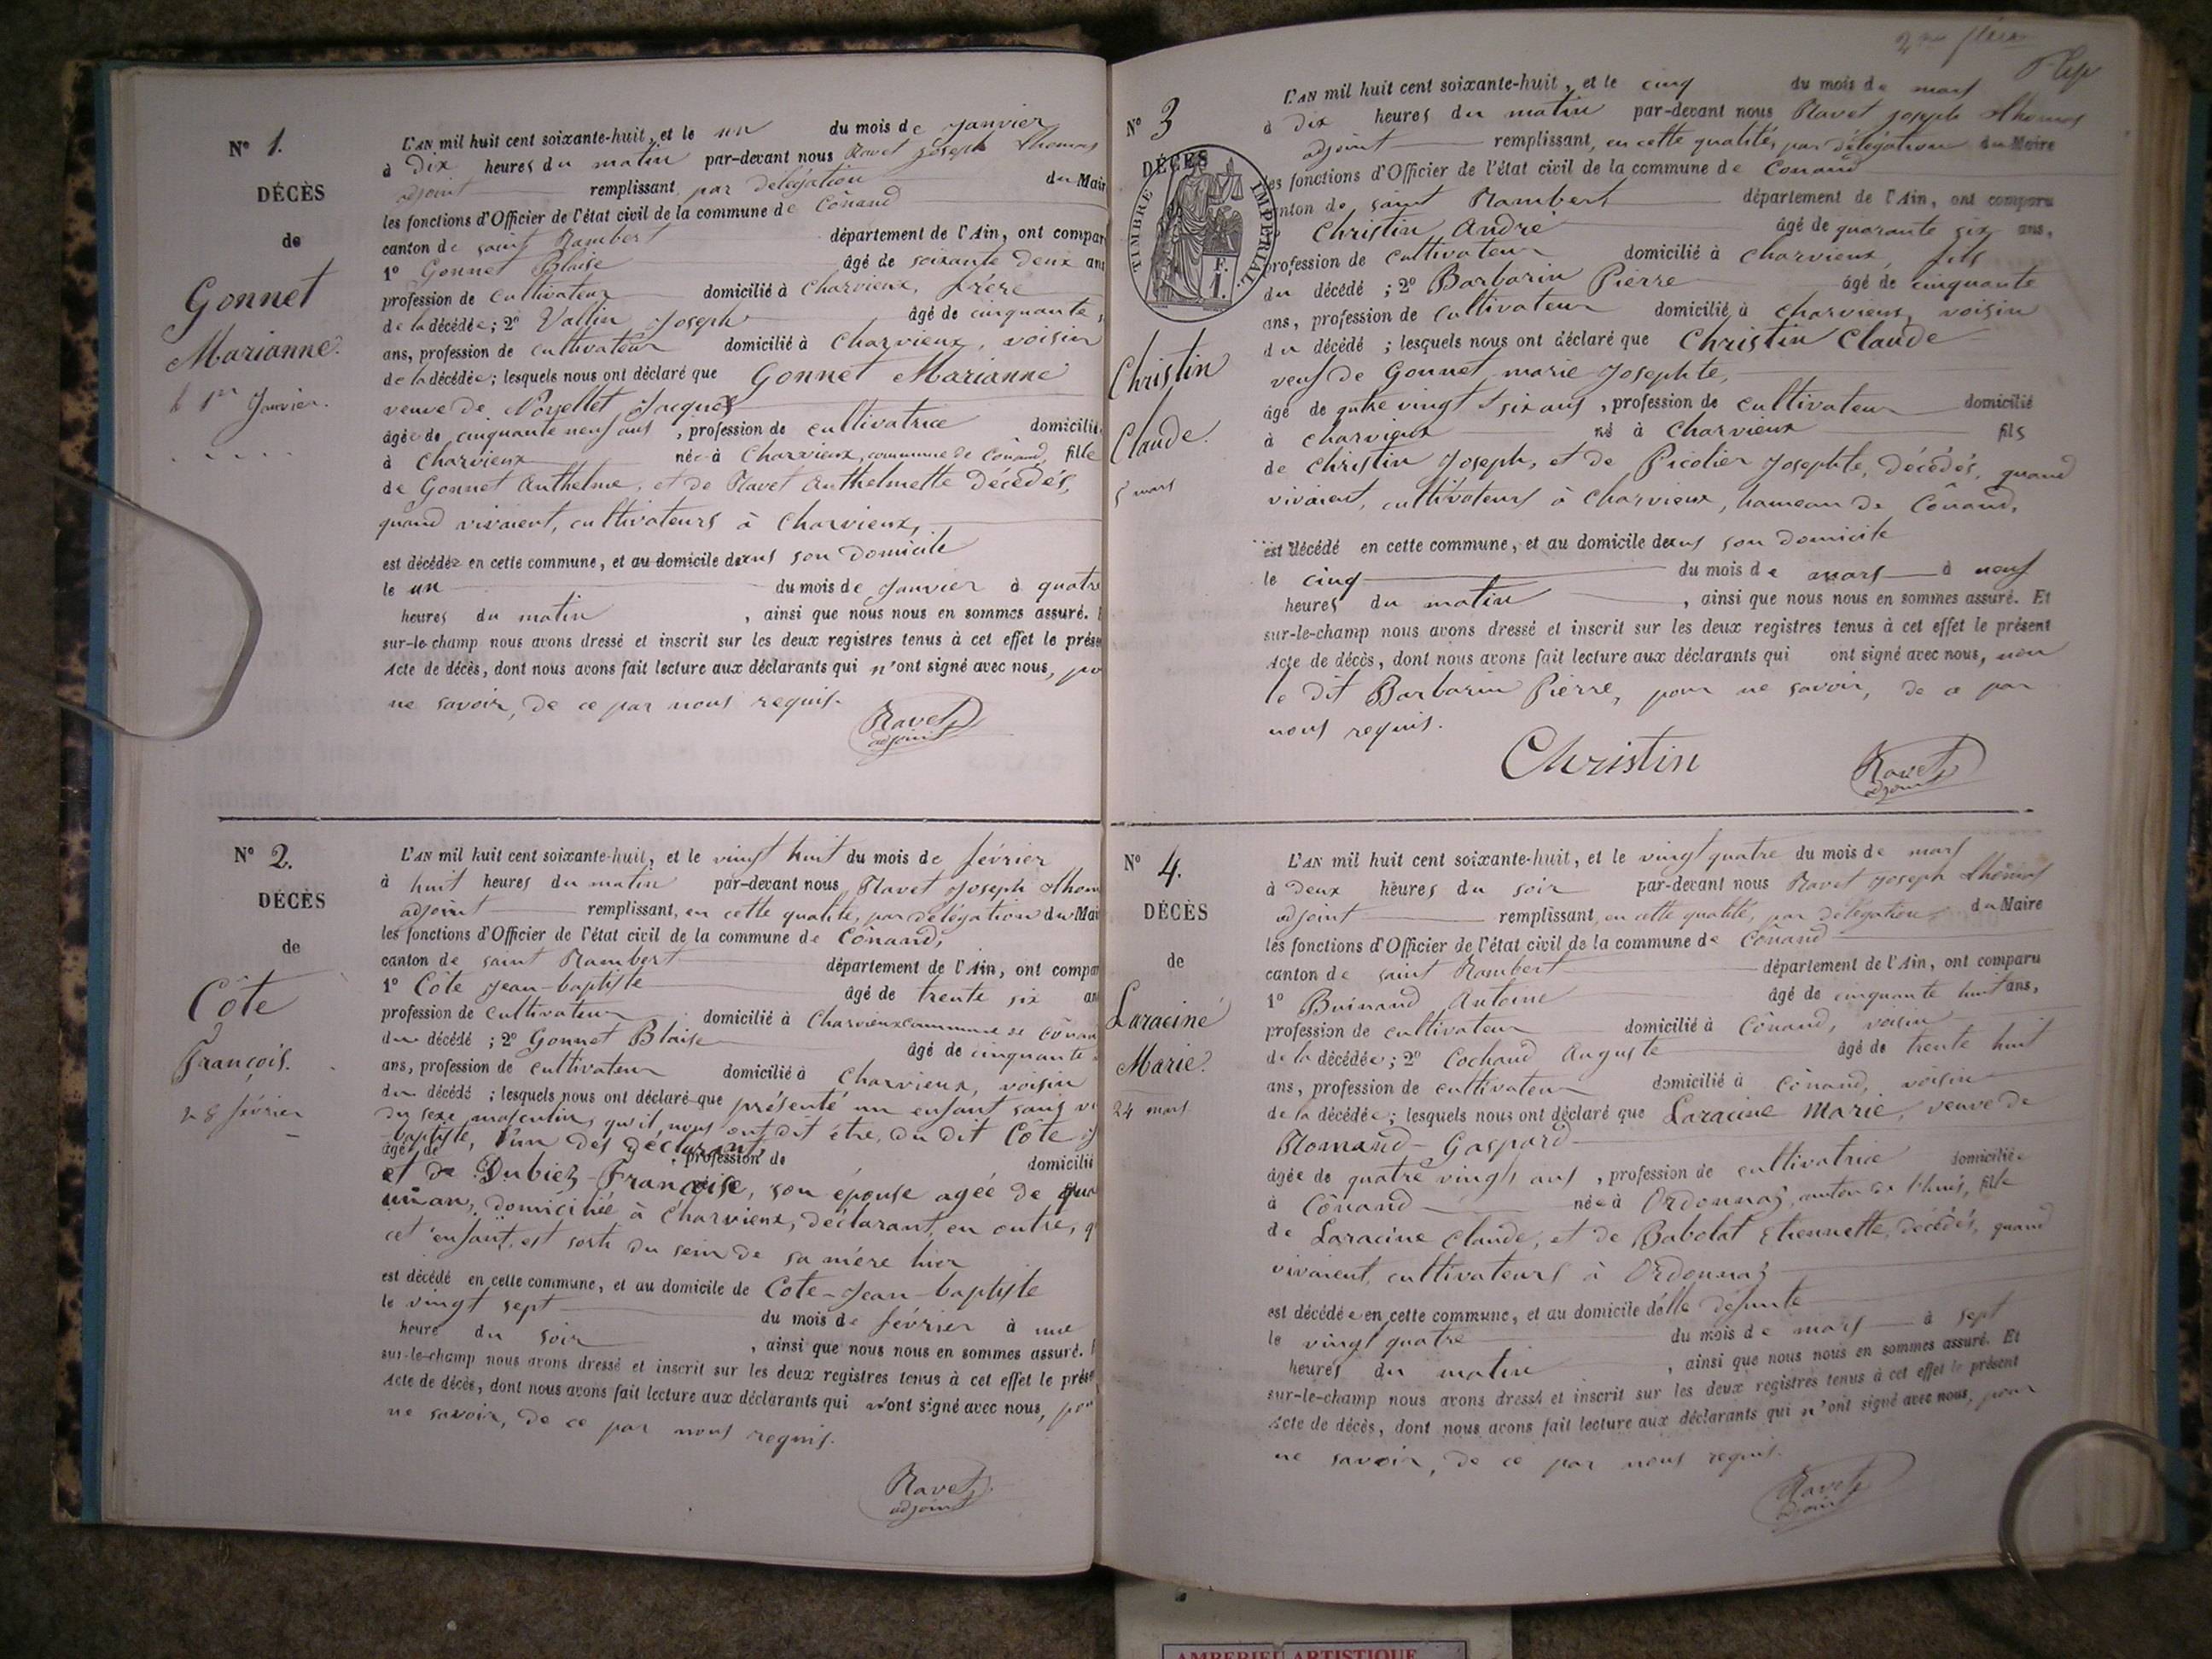 N° 1.
DÉCÈS
de
Gonnet
Marianne.
1er Janvier.
L'AN mil huit cent soixante-huit, et le un du mois de Janvier
à Dix heures du matin par-devant nous Ravet Joseph Thomas
adjoint remplissant par délégation du Mair
les fonctions d'Officier de l'état civil de la commune de Cônand
canton de saint Rambert département de l'Ain, ont compar
1° Gonnet Blaise âgé de soixante deux ans
profession de cultivateur domicilié à Charvieux, frère
de la décédée; 2° Vallin Joseph âgé de cinquante
ans, profession de cultivateur domicilié à Charvieux, voisin
de la décédée; lesquels nous ont déclaré que Gonnet Marianne
veuve de Noyellet Jacques
âgée de cinquante neuf ans, profession de cultivatrice domicilié
à Charvieux née à Charvieux, commune de Cônand, fille
de Gonnet Anthelme, et de Ravet Anthelmette décédés,
quand vivaient, cultivateurs à Charvieux,
est décédée en cette commune, et au domicile dans son domicile
le un du mois de Janvier à quatre
heures du matin, ainsi que nous nous en sommes assuré.
sur-le-champ nous avons dressé et inscrit sur les deux registres tenus à cet effet le prése
Acte de décès, dont nous avons fait lecture aux déclarants qui n'ont signé avec nous, po
ne savoir, de ce par nous requis.
Ravet
adjoint
N° 2.
DÉCÈS
de
Côte
François.
28 février
L'AN mil huit cent soixante-huit, et le vingt huit du mois de février
à huit heures du matin par-devant nous Ravet Joseph Thom
adjoint remplissant, en cette qualité, par délégation du Mai
les fonctions d'Officier de l'état civil de la commune de Cônand,
canton de saint Rambert département de l'Ain, ont compar
1° Côte Jean-baptiste âgé de trente six an
profession de cultivateur domicilié à Charvieux commune de Cônan
du décédé; 2° Gonnet Blaise âgé de cinquante
ans, profession de cultivateur domicilié à Charvieux, voisin
du décédé; lesquels nous ont déclaré que présenté un enfant sans vi
du sexe masculin, qu'il nous ont dit être, du dit Côte
baptiste, l'un des déclarant,
âgé de , profession de domicilié
et de Dubiez Françoise, son épouse agée de qua
un an, domiciliée à Charvieux, déclarant, en outre, q
cet enfant, est sorti du sein de sa mère hier
est décédé en cette commune, et au domicile de Cote-Jean-baptiste
le vingt sept du mois de février à une
heure du soir, ainsi que nous nous en sommes assuré.
sur-le-champ nous avons dressé et inscrit sur les deux registres tenus à cet effet le prése
Acte de décès, dont nous avons fait lecture aux déclarants qui n'ont signé avec nous, pou
ne savoir, de ce par nous requis.
Ravet
adjoint
N° 3
DÉCÈS
TIMBRE IMPÉRIAL
1 F.
Christin
Claude.
5 mars
L'AN mil huit cent soixante-huit, et le cinq du mois de mars
à Dix heures du matin par-devant nous Ravet Joseph Thomas
adjoint remplissant, en cette qualité, par délégation du Maire
les fonctions d'Officier de l'état civil de la commune de Conand
canton de saint Rambert département de l'Ain, ont comparu
Christin André âgé de quarante six ans,
profession de cultivateur domicilié à Charvieux, fils
du décédé; 2° Barbarin Pierre âgé de cinquante
ans, profession de cultivateur domicilié à Charvieux, voisin
du décédé; lesquels nous ont déclaré que Christin Claude
veuf de Gonnet marie Josephte,
âgé de quatre vingt six ans, profession de cultivateur domicilié
à Charvieux né à Charvieux fils
de Christin Joseph, et de Picolier Josephte, décédés, quand
vivaient, cultivateurs à Charvieux, hameau de Cônand,
est décédé en cette commune, et au domicile dans son domicile
le cinq du mois de mars à neuf
heures du matin, ainsi que nous nous en sommes assuré. Et
sur-le-champ nous avons dressé et inscrit sur les deux registres tenus à cet effet le présent
Acte de décès, dont nous avons fait lecture aux déclarants qui ont signé avec nous, non
le dit Barbarin Pierre, pour ne savoir, de ce par
nous requis.
Christin
Ravet
adjoint
N° 4.
DÉCÈS
de
Laracine
Marie.
24 mars
L'AN mil huit cent soixante-huit, et le vingt quatre du mois de mars
à deux heures du soir par-devant nous Ravet Joseph Thomas
adjoint remplissant, en cette qualité, par délégation du Maire
les fonctions d'Officier de l'état civil de la commune de Cônand
canton de saint Rambert département de l'Ain, ont comparu
1° Buinand Antoine âgé de cinquante huit ans,
profession de cultivateur domicilié à Cônand, voisin
de la décédée; 2° Cochaud Auguste âgé de trente huit
ans, profession de cultivateur domicilié à Cônand, voisin
de la décédée; lesquels nous ont déclaré que Laracine Marie, veuve de
Romand-Gaspard
âgée de quatre vingts ans, profession de cultivatrice domiciliée
à Cônand née à Ordonnaz, canton de Lhuis, fille
de Laracine Claude, et de Babolat Etiennette, décédés, quand
vivaient, cultivateurs à Ordonnaz
est décédée en cette commune, et au domicile de lle défunte
le vingt quatre du mois de mars à sept
heures du matin, ainsi que nous nous en sommes assuré. Et
sur-le-champ nous avons dressé et inscrit sur les deux registres tenus à cet effet le présent
Acte de décès, dont nous avons fait lecture aux déclarants qui n'ont signé avec nous, pour
ne savoir, de ce par nous requis.
Ravet
adjoint
AMBERIEU ARTISTIQUE